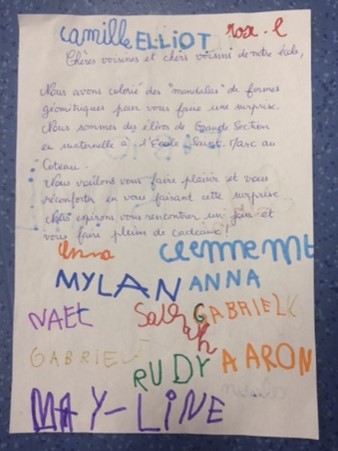 camille ELLIOT rose.l
Chères voisines et chers voisins de notre école,
Nous avons colorié des "mandalas" de formes
géométriques pour vous faire une surprise.
Nous sommes des élèves de Grande Section
en maternelle à l'École Saint. Marc au
Coteau.
Nous voulons vous faire plaisir et vous
réconforter en vous faisant cette surprise
Nous espérons vous rencontrer un jour et
vous faire plein de cadeaux,
Anna
MYLAN ANNA
NAEL GABRIEL
GABRIEL
RUDY AARON
MAY-LINE